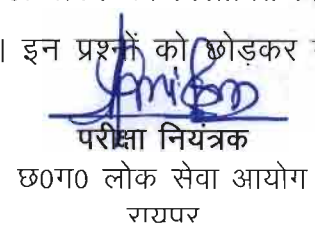 । इन प्रश्नों को छोड़कर
परीक्षा नियंत्रक
छ0ग0 लोक सेवा आयोग
रायपुर